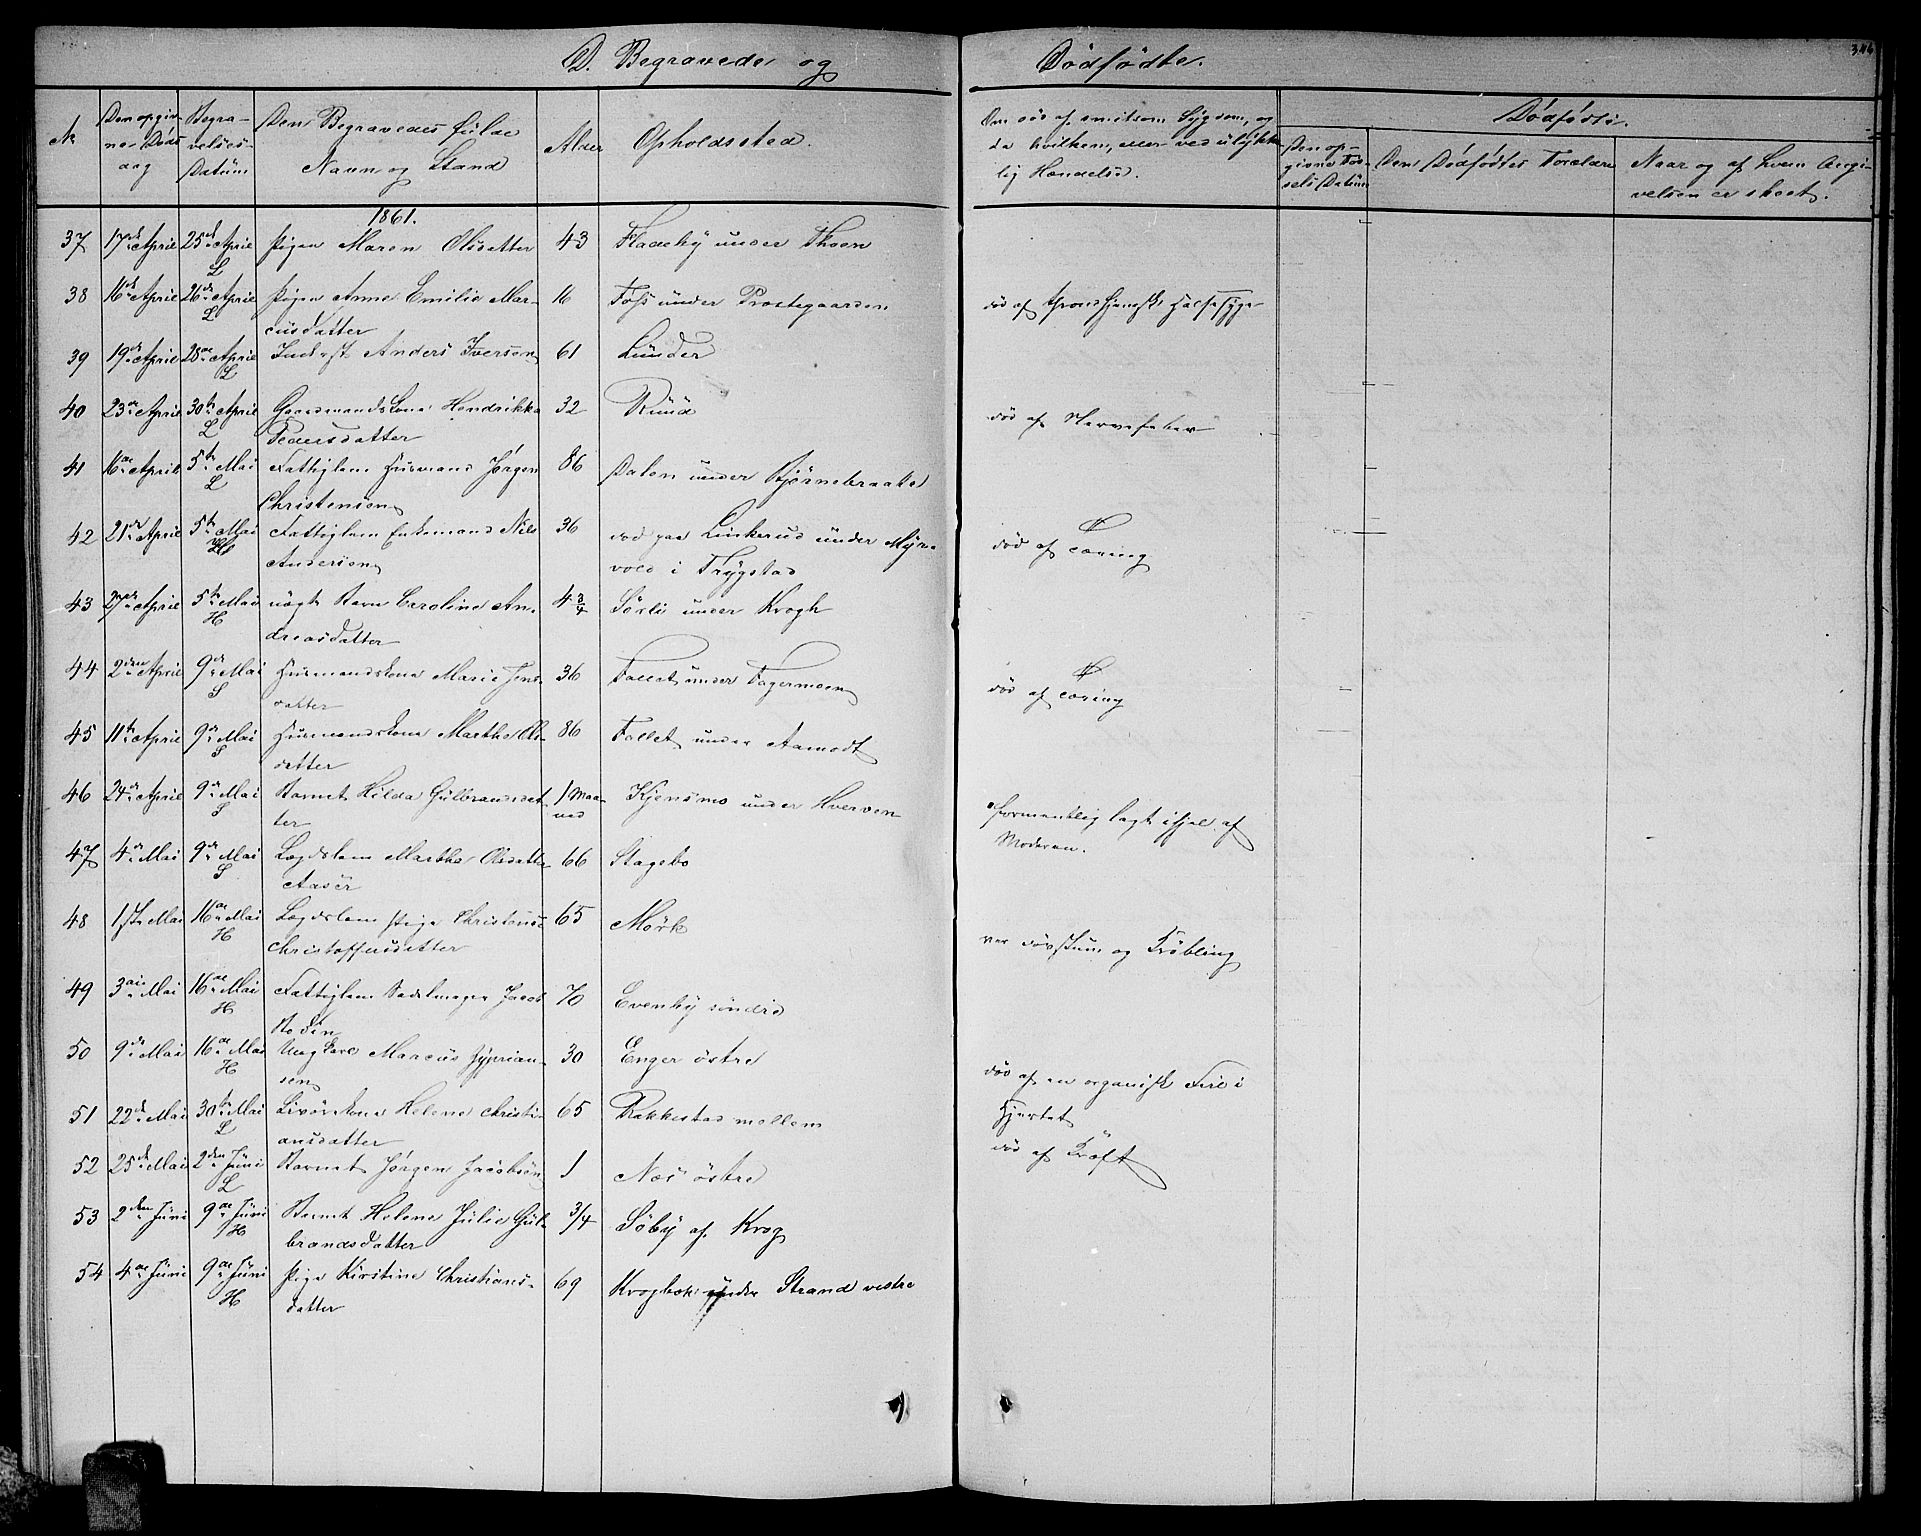 D. Begravede og Dødfødte.
346
No
Den opgiv-
ne Døds
dag
Begra-
velses-
Datum
Den Begravedes fulde
Navn og Stand
Alder
Opholdssted.
Om død af smitsom Sygdom, og
da hvilken, eller ved ulykke
lig Hændelse.
Dødfødte.
Den op-
givne Fød-
sels Datum
Den Dødfødtes Forældre
Naar og af hvem Angi-
velsen er skeet.
1861.
37 17de April 25de April L Pigen Maren Olsdatter 43 Fladeby under Skoen
38 16de April 26de April L Pigen Anne Emilie Mar-
cusdatter 16 Foss under Præstegaarden død af Halssyge
39 19de April 28de April L Inderst Anders Iversen 61 Lunder
40 23de April 30te April L Gaardmandskone Hendrikke
Pedersdatter 32 Ruud død af Nervefeber
41 16de April 5te Mai L Fattiglem Husmand Jørgen
Christensen 86 Dalen under Bjørnebraatte
42 21de April 5te Mai Fattiglem Enkemand Nils
Andersen 36 død paa Linkerud under Myr-
vold i Trygstad død af Tæring
43 27de April 5te Mai H uægte Barn Caroline An-
dreasdatter 4 3/4 Sørli under Krogh
44 2den April 9de Mai S Husmandskone Marie Jens-
datter 36 Fallet under Fagermoen død af Tæring
45 11te April 9de Mai S Husmandskone Marthe Ols-
datter 86 Fallet under Aamodt
46 24de April 9de Mai S Barnet Hilda Gulbrandsdat-
ter 1 Maa-
ned Kjensmo under Hverven formentlig lagt ihjel af
Moderen.
47 4de Mai 9de Mai S Lægdslem Marthe Olsdatter
Aasér 66 Stagebo
48 1ste Mai 16de Mai H Lægdslem Pige Christense
Christoffersdatter 65 Mørk var døvstum og Krøbling
49 3die Mai 16de Mai H Fattiglem Sadelmager Jacob
Bodin 70 Evenby søndre
50 9de Mai 16de Mai H Ung Karl Marcus Zyprian-
sen 30 Enger østre død af en organisk Feil i
Hjertet
51 22de Mai 30te Mai L Livørskone Helene Christi-
ansdatter 65 Rakkestad mellem død af Kræft
52 25de Mai 2den Juni L Barnet Jørgen Jacobsen 1 Næs østre
53 2den Juni 9de Juni H Barnet Helene Julie Gul-
brandsdatter 3/4 Søby af Krog
54 4de Juni 9de Juni H Pige Kirstine Christians-
datter 69 Krogbæk under Strand vestre